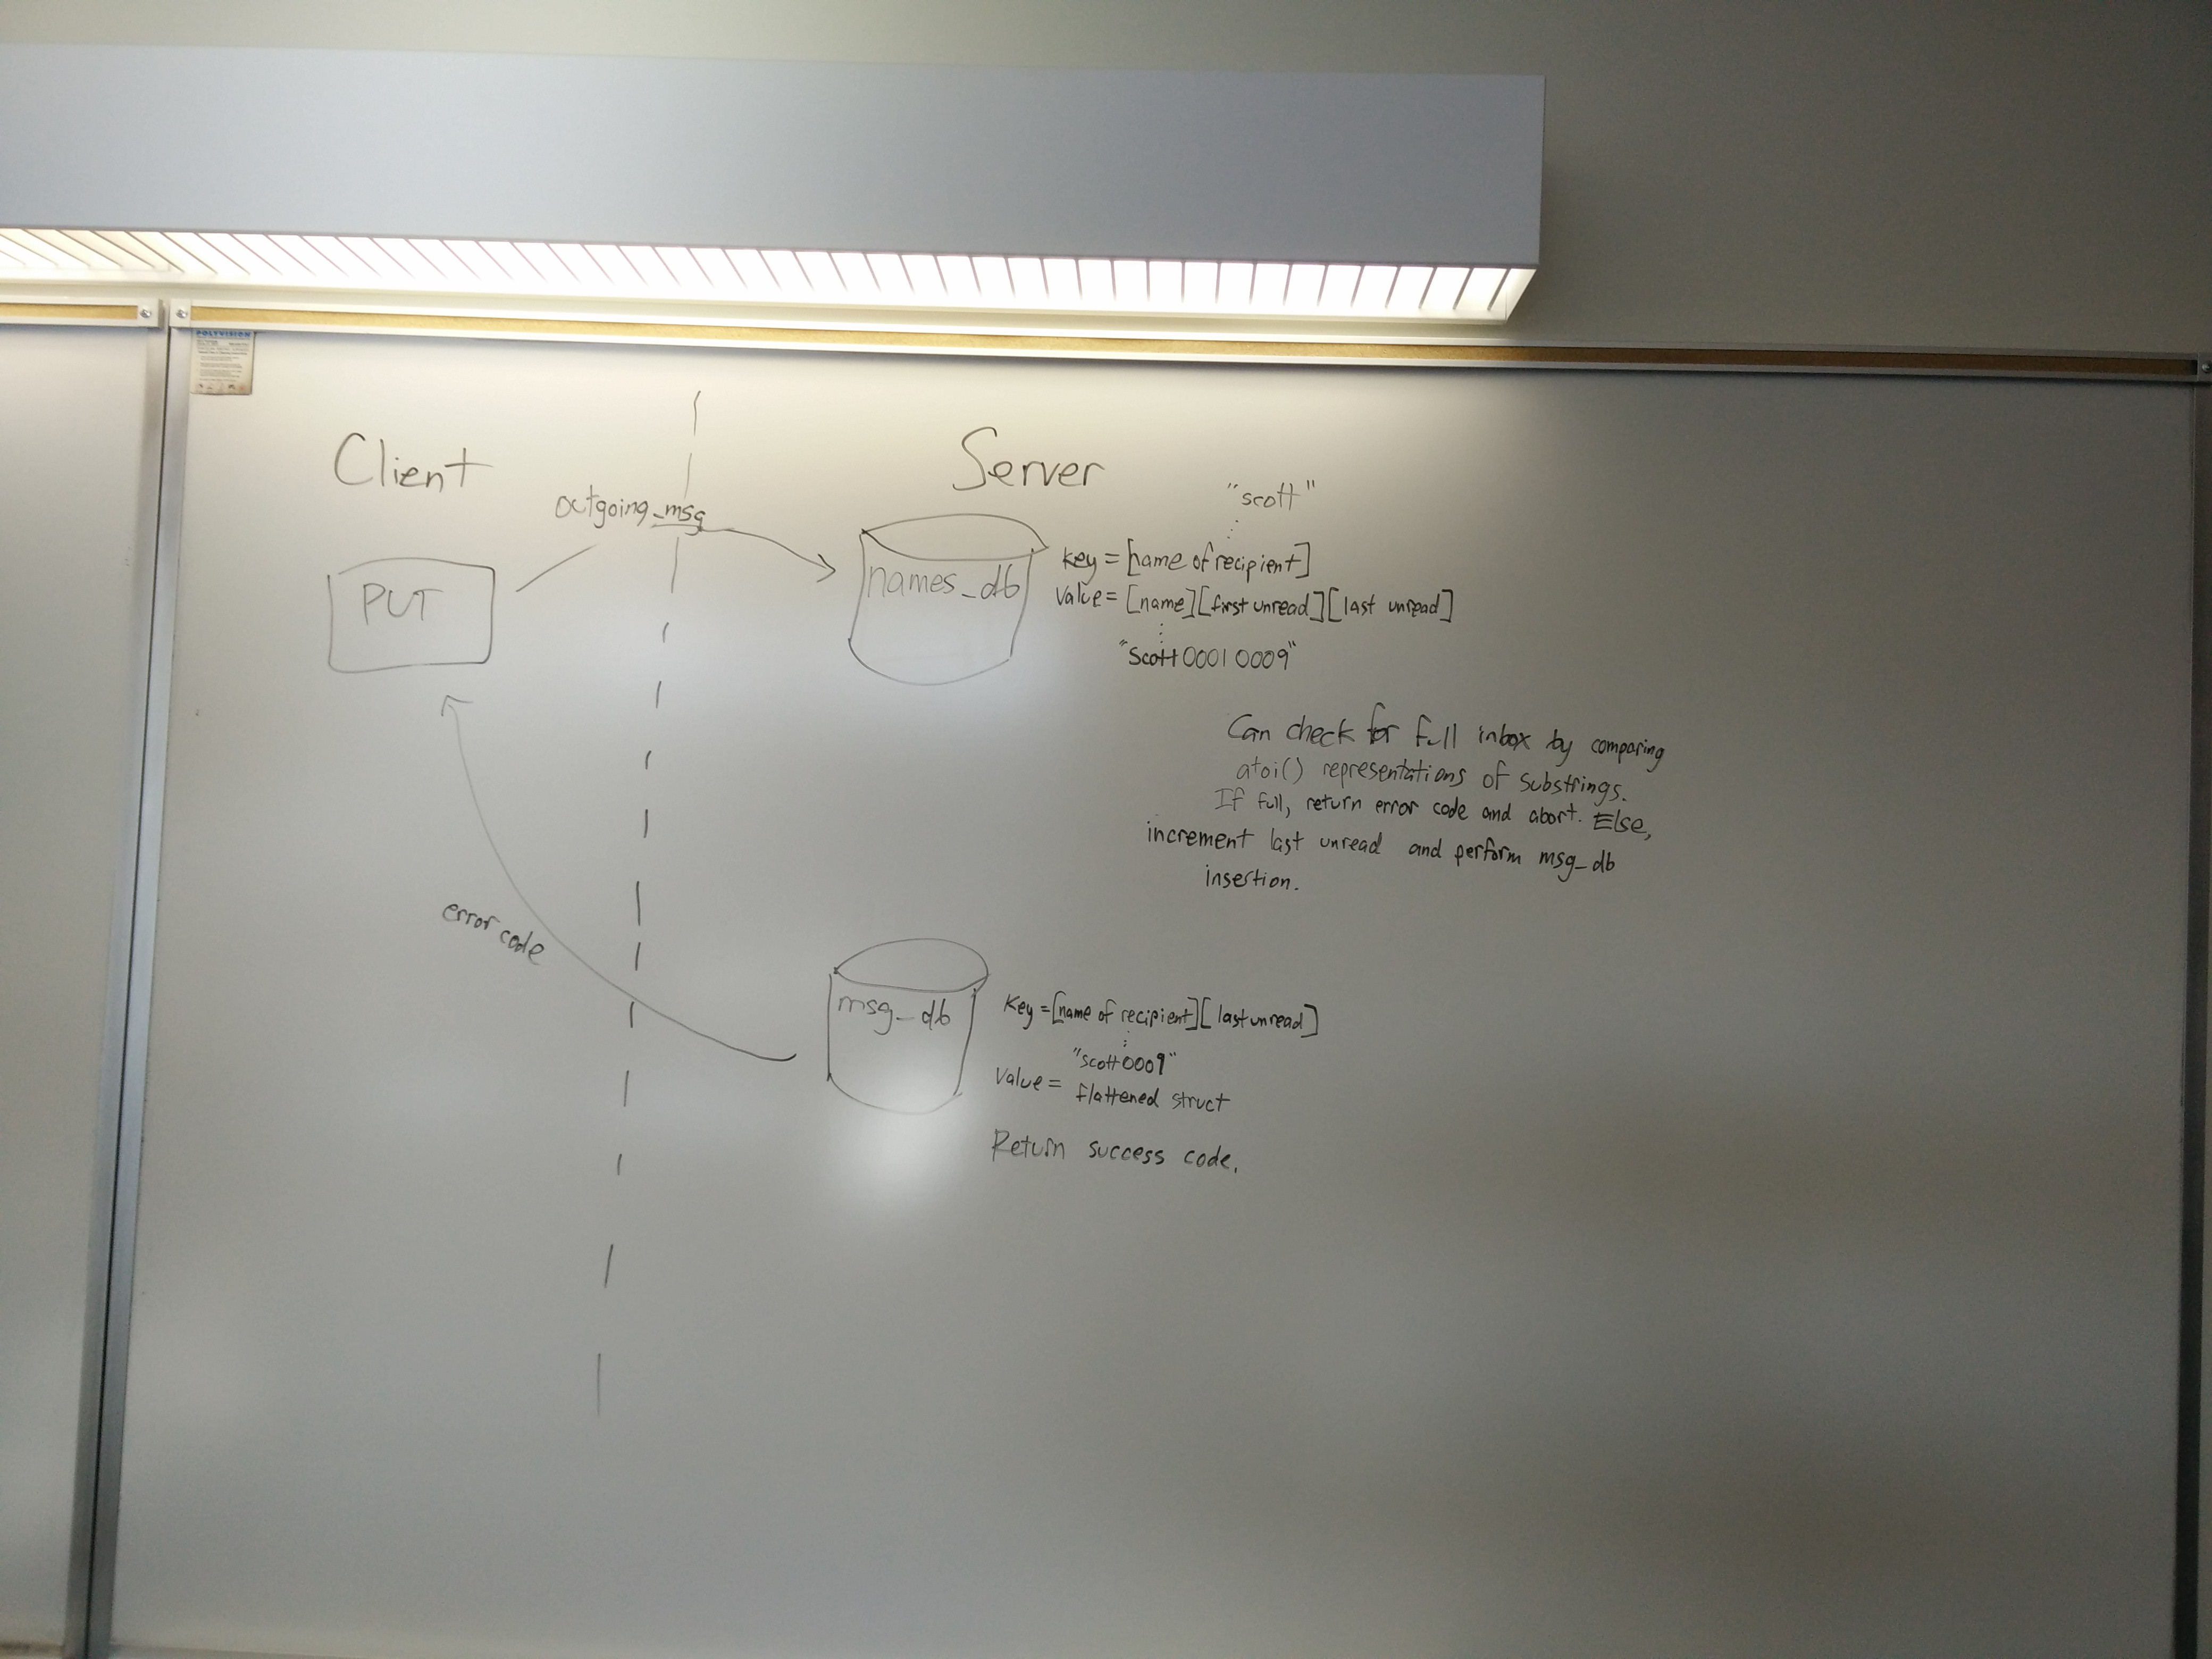 POLYVISION
Client
Server
outgoing_msg
"scott"
PUT
names_db
key = [name of recipient]
value = [name][first unread][last unread]
"scott00010009"
Can check for full inbox by comparing
atoi() representations of substrings.
If full, return error code and abort. Else,
increment last unread and perform msg_db
insertion.
error code
msg_db
Key = [name of recipient][last unread]
"scott0009"
Value = flattened struct
Return success code.